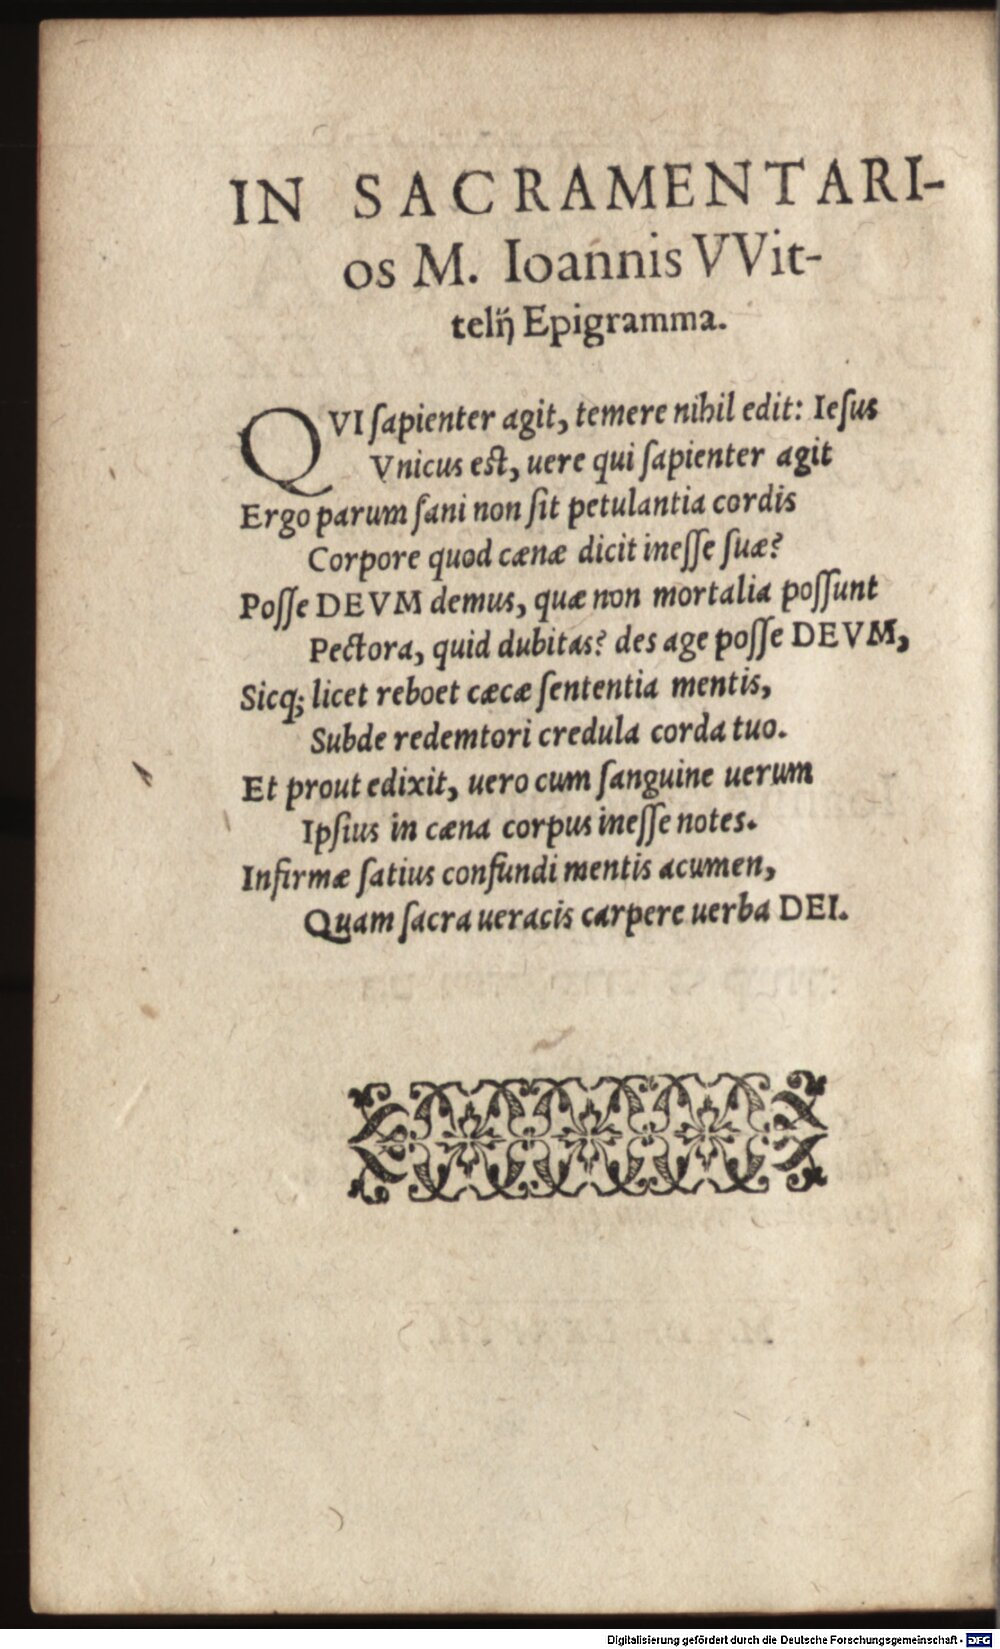 IN SACRAMENTARI-
os M. Ioannis VVit-
telij Epigramma.
QVI ſapienter agit, temere nihil edit: Ieſus
Vnicus eſt, uere qui ſapienter agit
Ergo parum ſani non ſit petulantia cordis
Corpore quod cænæ dicit ineſſe ſuæ?
Poſſe DEVM demus, quæ non mortalia poſſunt
Pectora, quid dubitas? des age poſſe DEVM,
Sicq; licet reboet cæcæ ſententia mentis,
Subde redemtori credula corda tuo.
Et prout edixit, uero cum ſanguine uerum
Ipſius in cæna corpus ineſſe notes.
Infirmæ ſatius confundi mentis acumen,
Quam ſacra ueracis carpere uerba DEI.
Digitalisierung gefördert durch die Deutsche Forschungsgemeinschaft - DFG